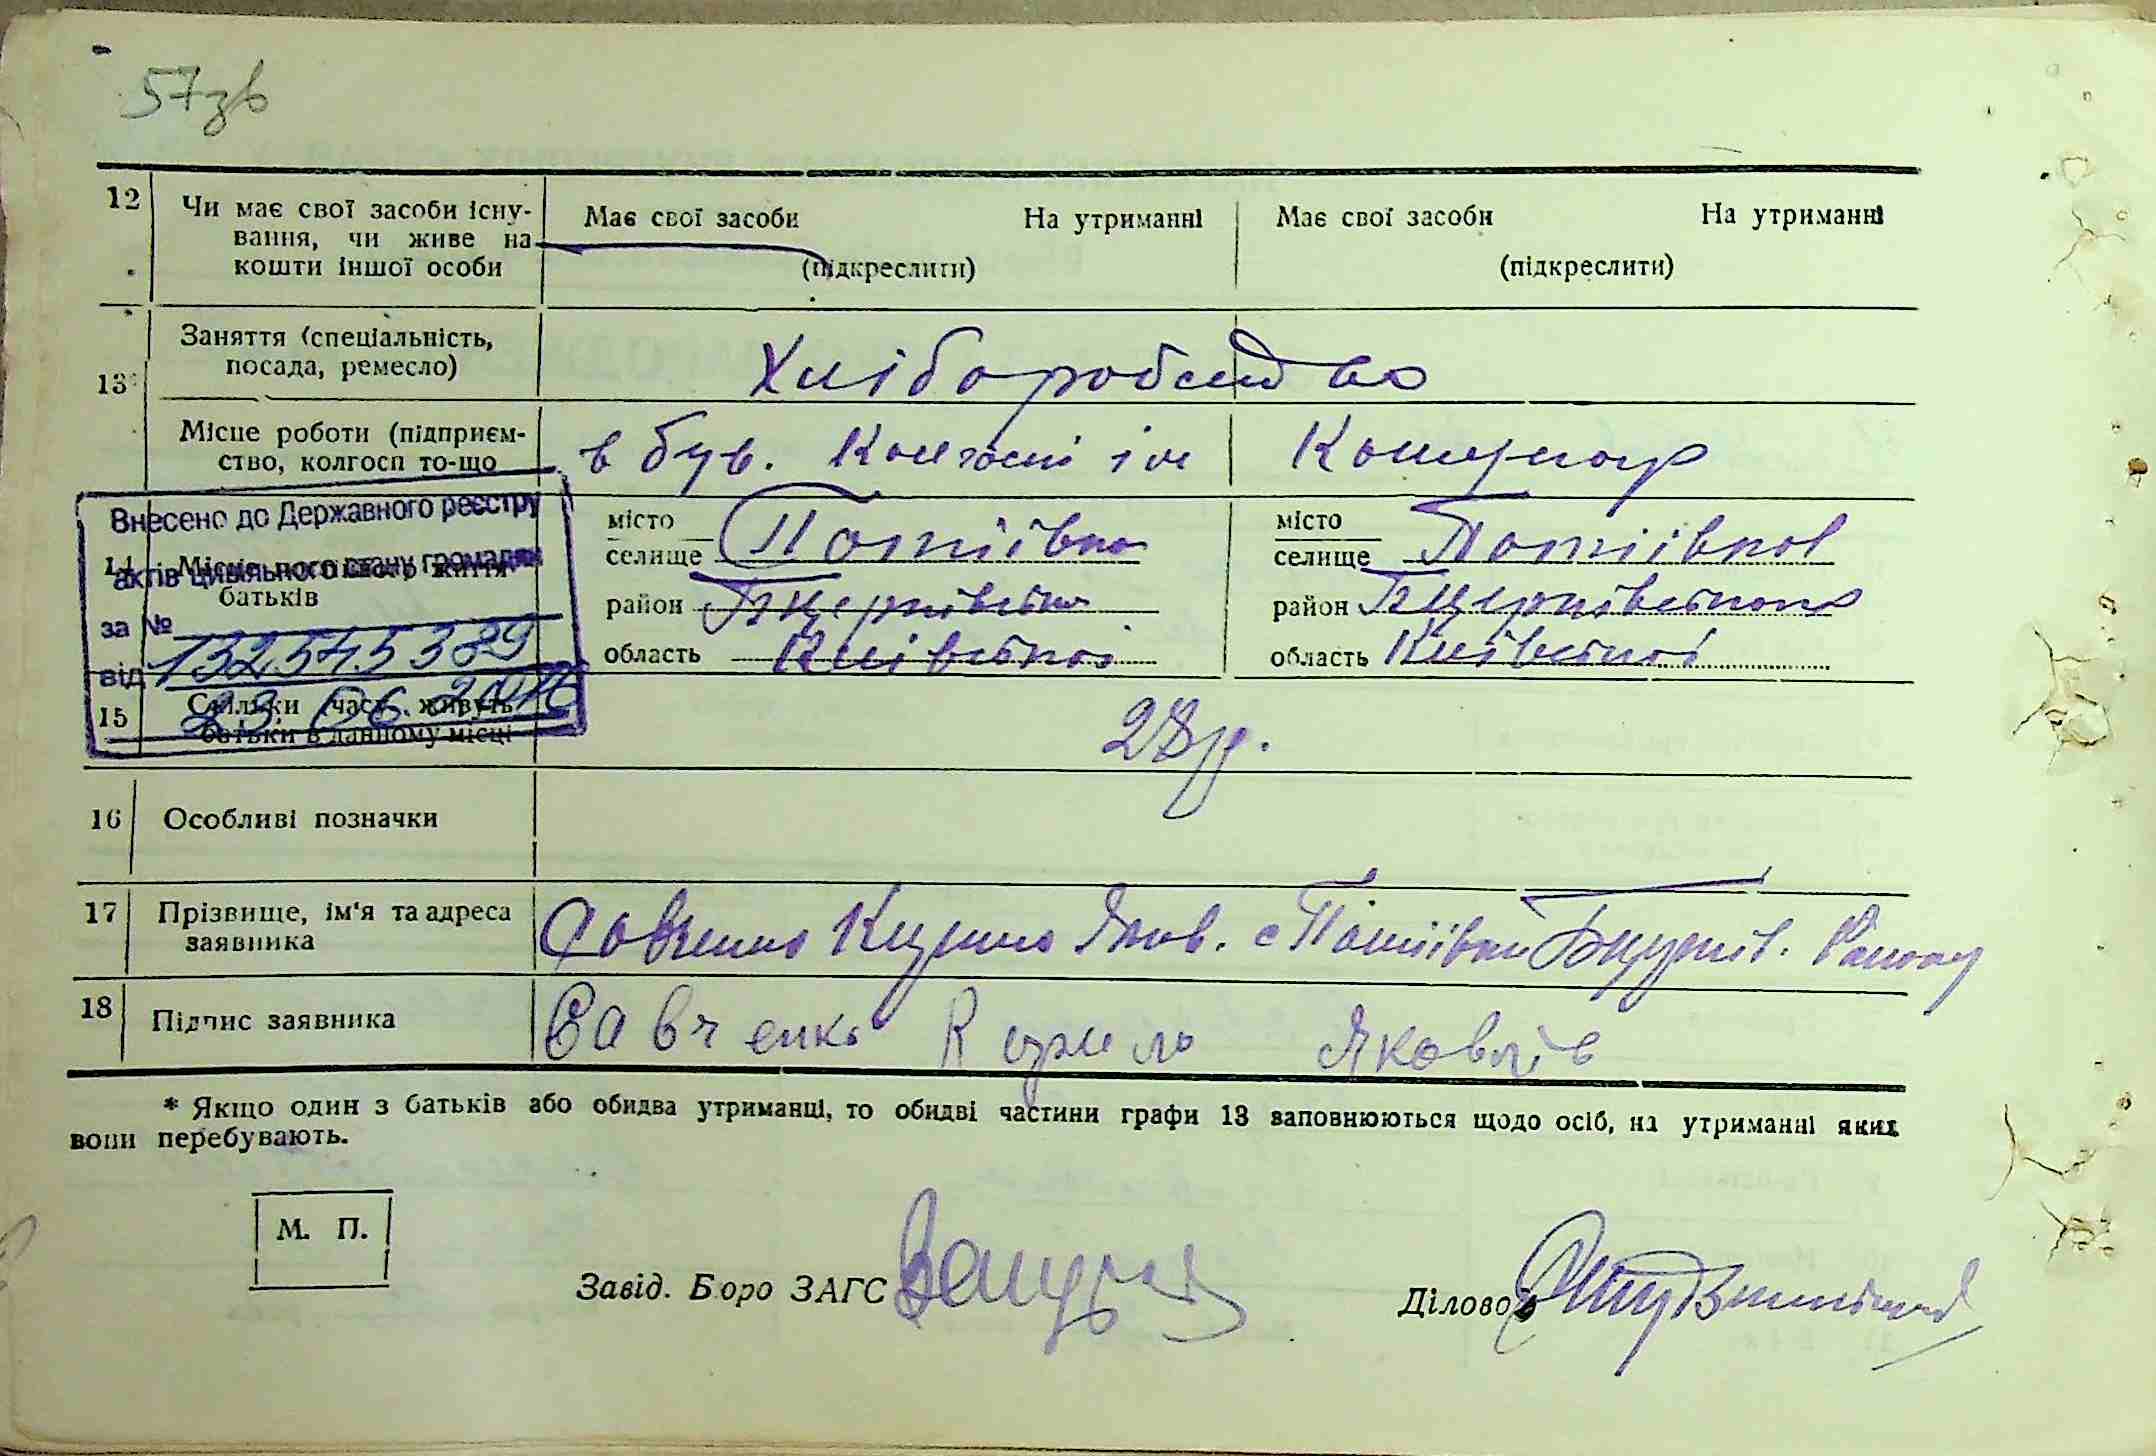 57зв
12 Чи має свої засоби існу- Має свої засоби На утриманні Має свої засоби На утриманні
вання, чи живе на
кошти іншої особи (підкреслити) (підкреслити)
Заняття (спеціальність,
посада, ремесло) Хліборобство
13*
Місце роботи (підприєм- в був. Колгоспі ім
ство, колгосп то-що
Внесено до Державного реєстру
актів цивільного стану громадян
за № 132545389
від 23.06.2016
14 Місце постійного життя
батьків
місто місто
селище Потіївка селище Потіївка
район Бцерківськ район Бцерківського
область Київської область Київської
15 Скільки часу живуть
батьки в данному місці 28 р.
16 Особливі позначки
17 Прізвище, ім'я та адреса
заявника Савченко Кирило Яков. с Потіївки Бцерків. Району
18 Підпис заявника Савченко Кирило Яковлів
* Якщо один з батьків або обидва утриманці, то обидві частини графи 13 заповнюються щодо осіб, на утриманні яких
вони перебувають.
М. П.
Завід. Бюро ЗАГС
Діловод